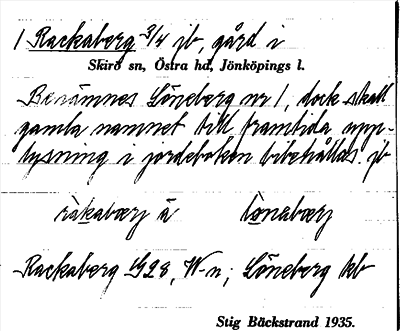 1 Rackaberg 3/4 jb, gård i
Skirö sn, Östra hd, Jönköpings l.
Benämnes Löneberg nr 1, dock skall
gamla namnet till framtida upp-
lysning i jordeboken bibehållas. jb
rakabærj ä lönabærj
Rackaberg G28, W-n; Löneberg kb
Stig Bäckstrand 1935.